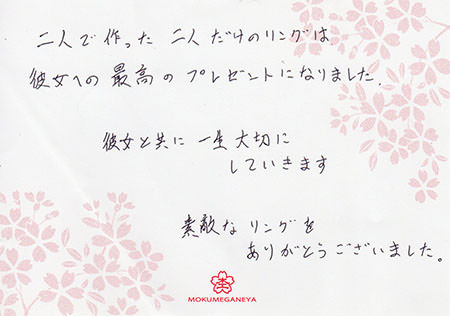 二人で作った 二人だけのリングは
彼女への最高のプレゼントになりました.
彼女と共に一生大切に
していきます
素敵なリングを
ありがとうございました。
杢
MOKUMEGANEYA